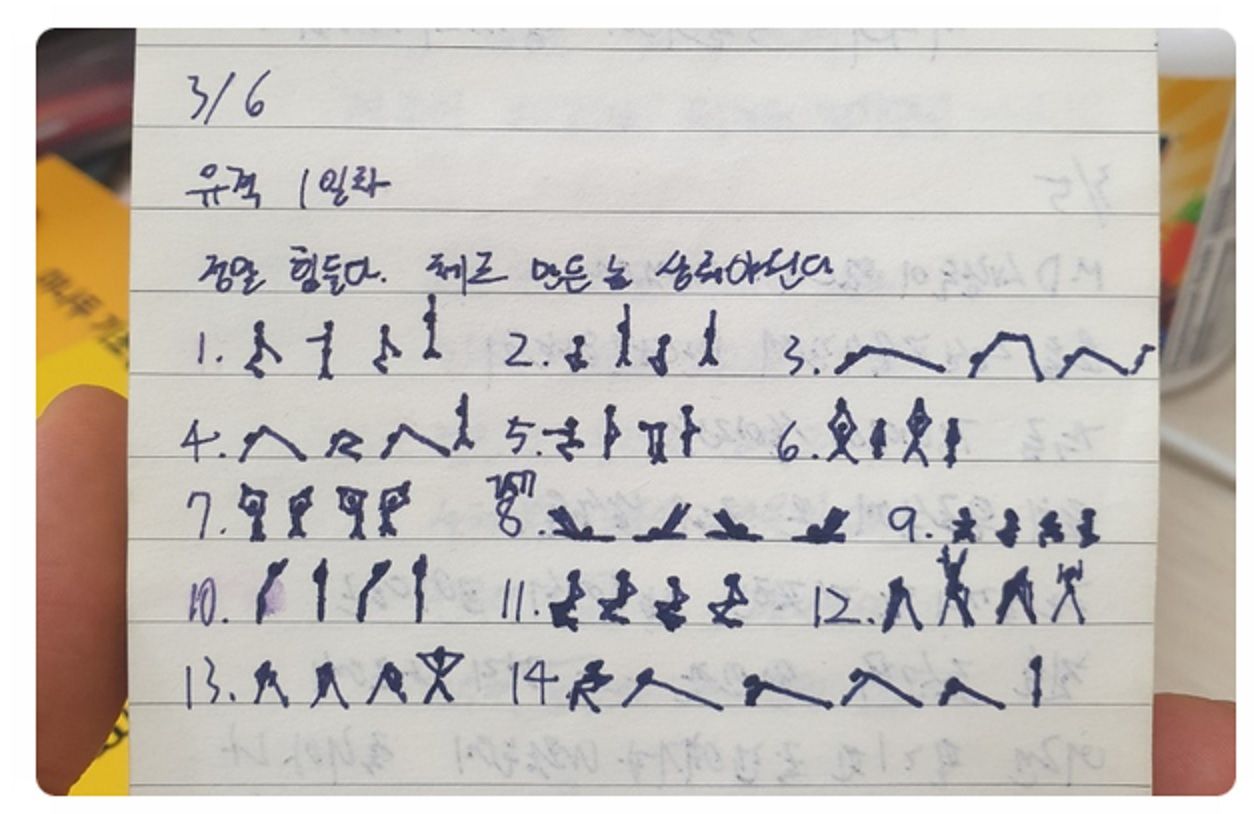 3/6
유격 1일차
정말 힘들다. 체조 만든 놈 상줘야된다
1. 2. 3.
4. 5. 6.
7. 8. 9.
10. 11. 12.
13. 14.